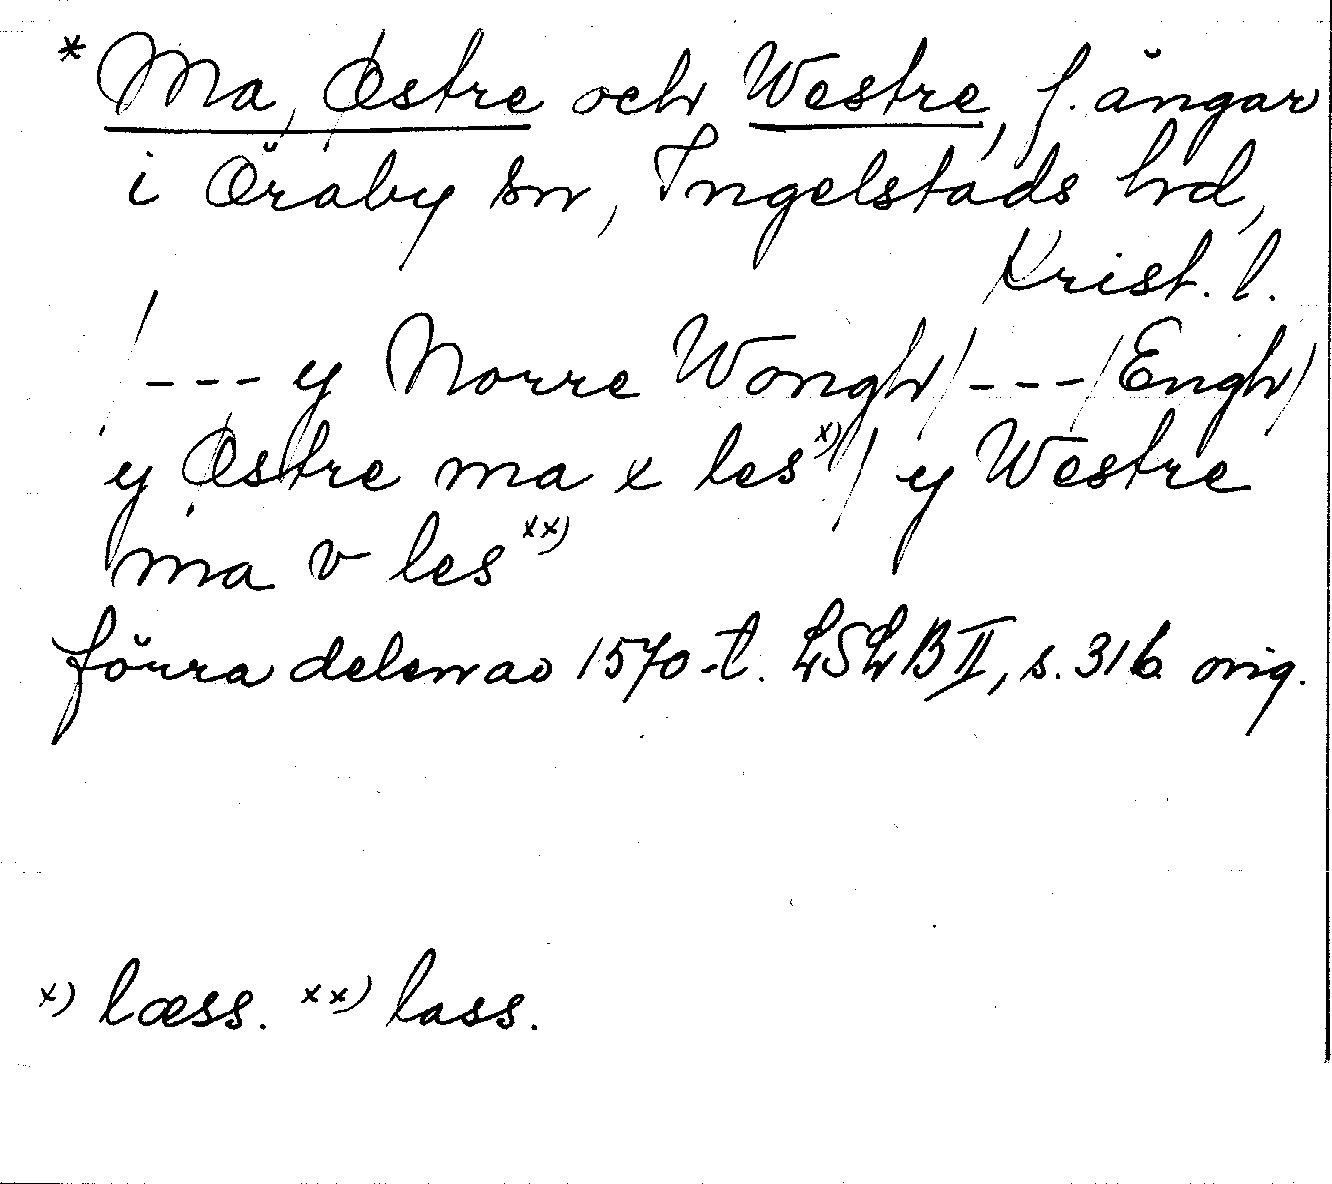 * Ma, Østre och Westre, f. ängar
i Öraby sn, Ingelstads hd,
Krist. l.
/ --- y Norre Wongh/ --- /Engh/
y Østre ma x les x) / y Westre
ma v les xx)
förra delen av 1570-t. LSLB II, s. 316 orig.
x) læss. xx) lass.